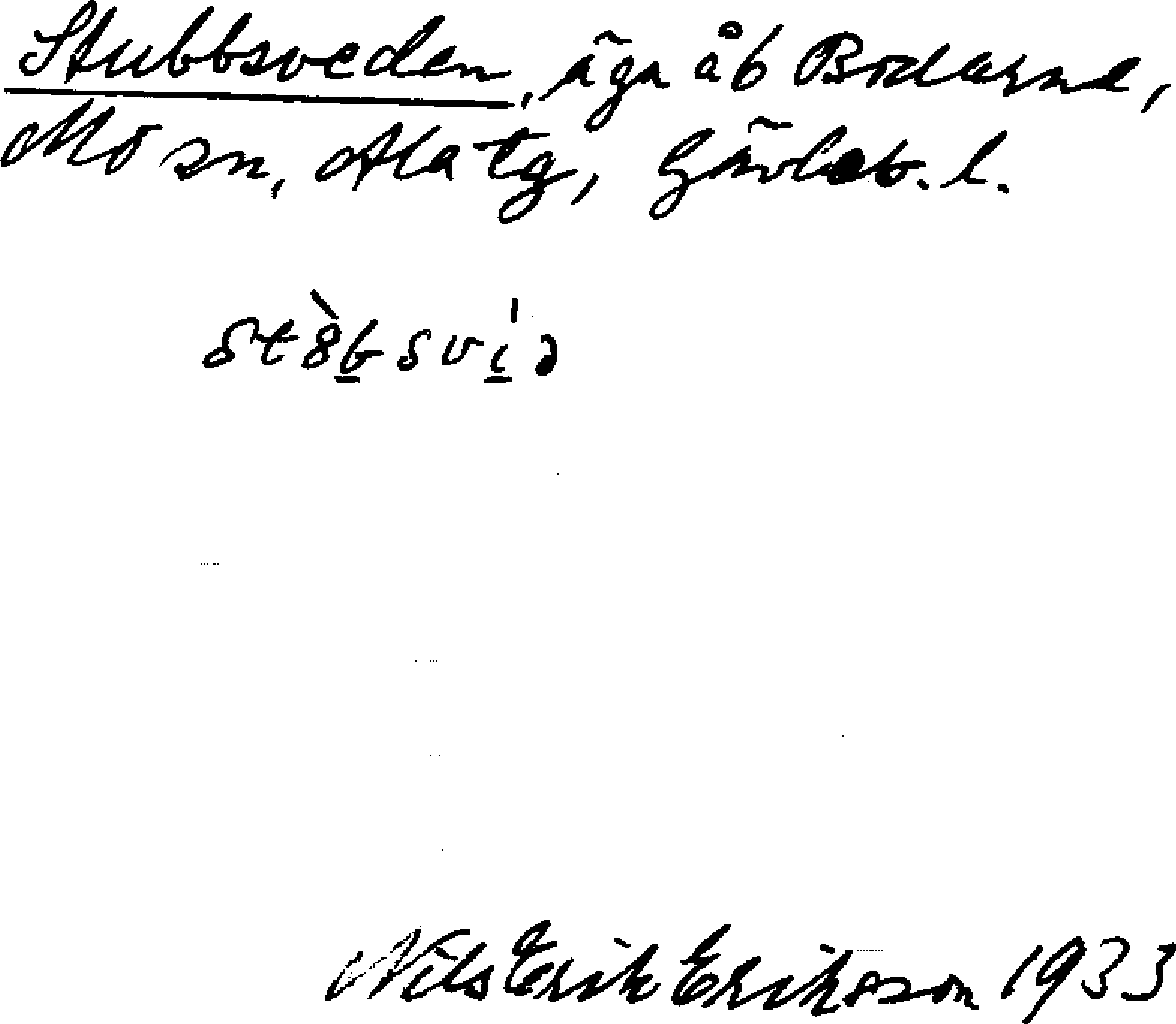 Stubbsveden, äga åb Bodarne,
Mo sn, Ala tg, Gävleb. l.
Nils Erik Eriksson 1933